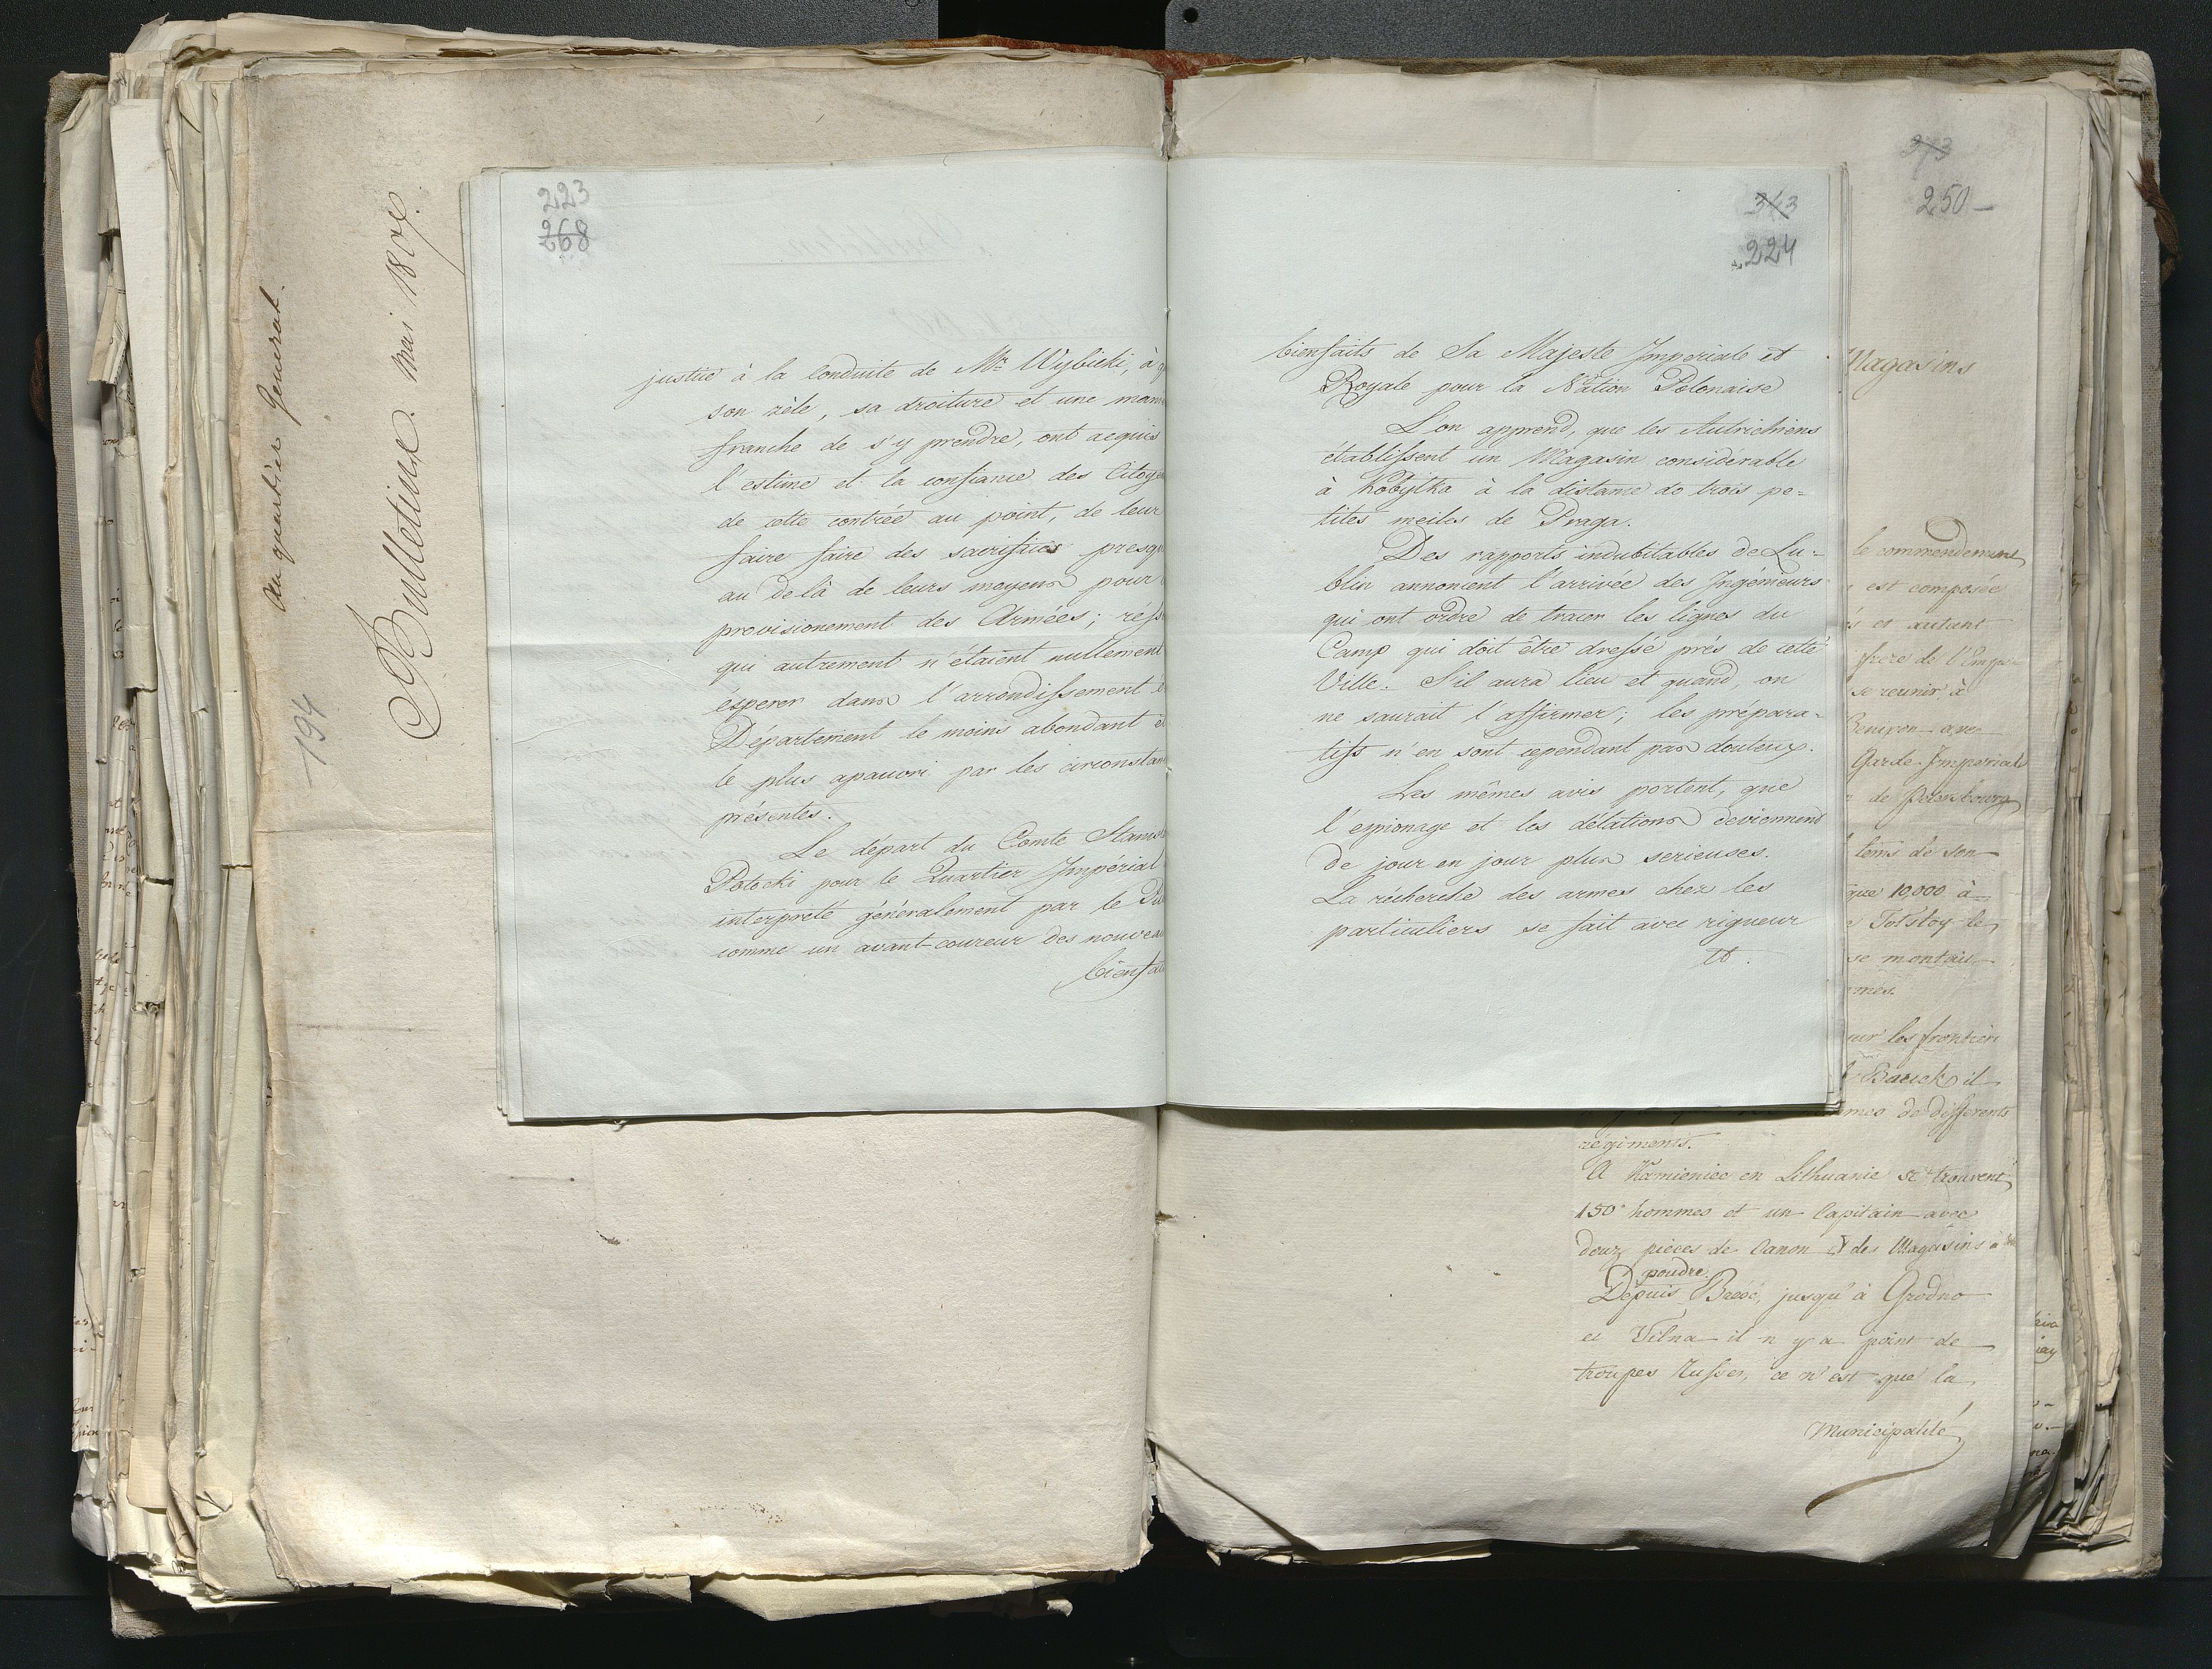 Au quartier General.
Bulletins. Mai 1807.
194
223
268
justice à la conduite de Mr. Wybicki, à q
son zèle, sa droiture et une mani
franche de s'y prendre, ont acquis
l'estime et la confiance des Citoye
de cette contrée au point, de leur
faire faire des sacrifices presqu
au delà de leurs moyens pour
provisionement des Armées; résso
qui autrement n'étaient nullement
ésperer dans l'arrondissement e
Département le moins abondant e
le plus apauvri par les circonstan
présentes.
Le départ du Comte Stanis
Potocki pour le Quartier Impérial
interprété généralement par le Pu
comme un avant-coureur des nouvea
bienfai
224
bienfaits de Sa Majeste Imperiale et
Royale pour la Nation Polonaise
L'on apprend, que les Autrichiens
établissent un Magasin considérable
à Kobyłka à la distance de trois pe-
tites meiles de Praga.
Des rapports indubitables de Lu-
blin annoncent l'arrivée des Ingénieurs
qui ont ordre de tracer les lignes du
Camp qui doit être dressé prés de cette
Ville. S'il aura lieu et quand, on
ne saurait l'affirmer; les prépara-
tifs n'en sont cependant pas douteux.
Les mêmes avis portent, que
l'espionage et les délations deviennend
de jour en jour plus serieuses.
La récherche des armes chez les
particuliers se fait avec rigueur
273
250
Magasins
le commendement
est composée
et autant
frere de l'Empe
se reunir à
avec
Garde-Imperiale
de Petersbourg
tems de son
que 10,000 à
Tolstoy le
se montais
mes.
sur les frontieri
il
mes de differents
régiments.
A Kamieniec en Lithuanie se trouvent
150 hommes et un Capitain avec
douz pieces de Canon & des Magasins à
poudre.
Depuis Brześć, jusqu'à Grodno
et Vilna il n'y a point de
troupes Russes, ce n'est que la
Municipalité